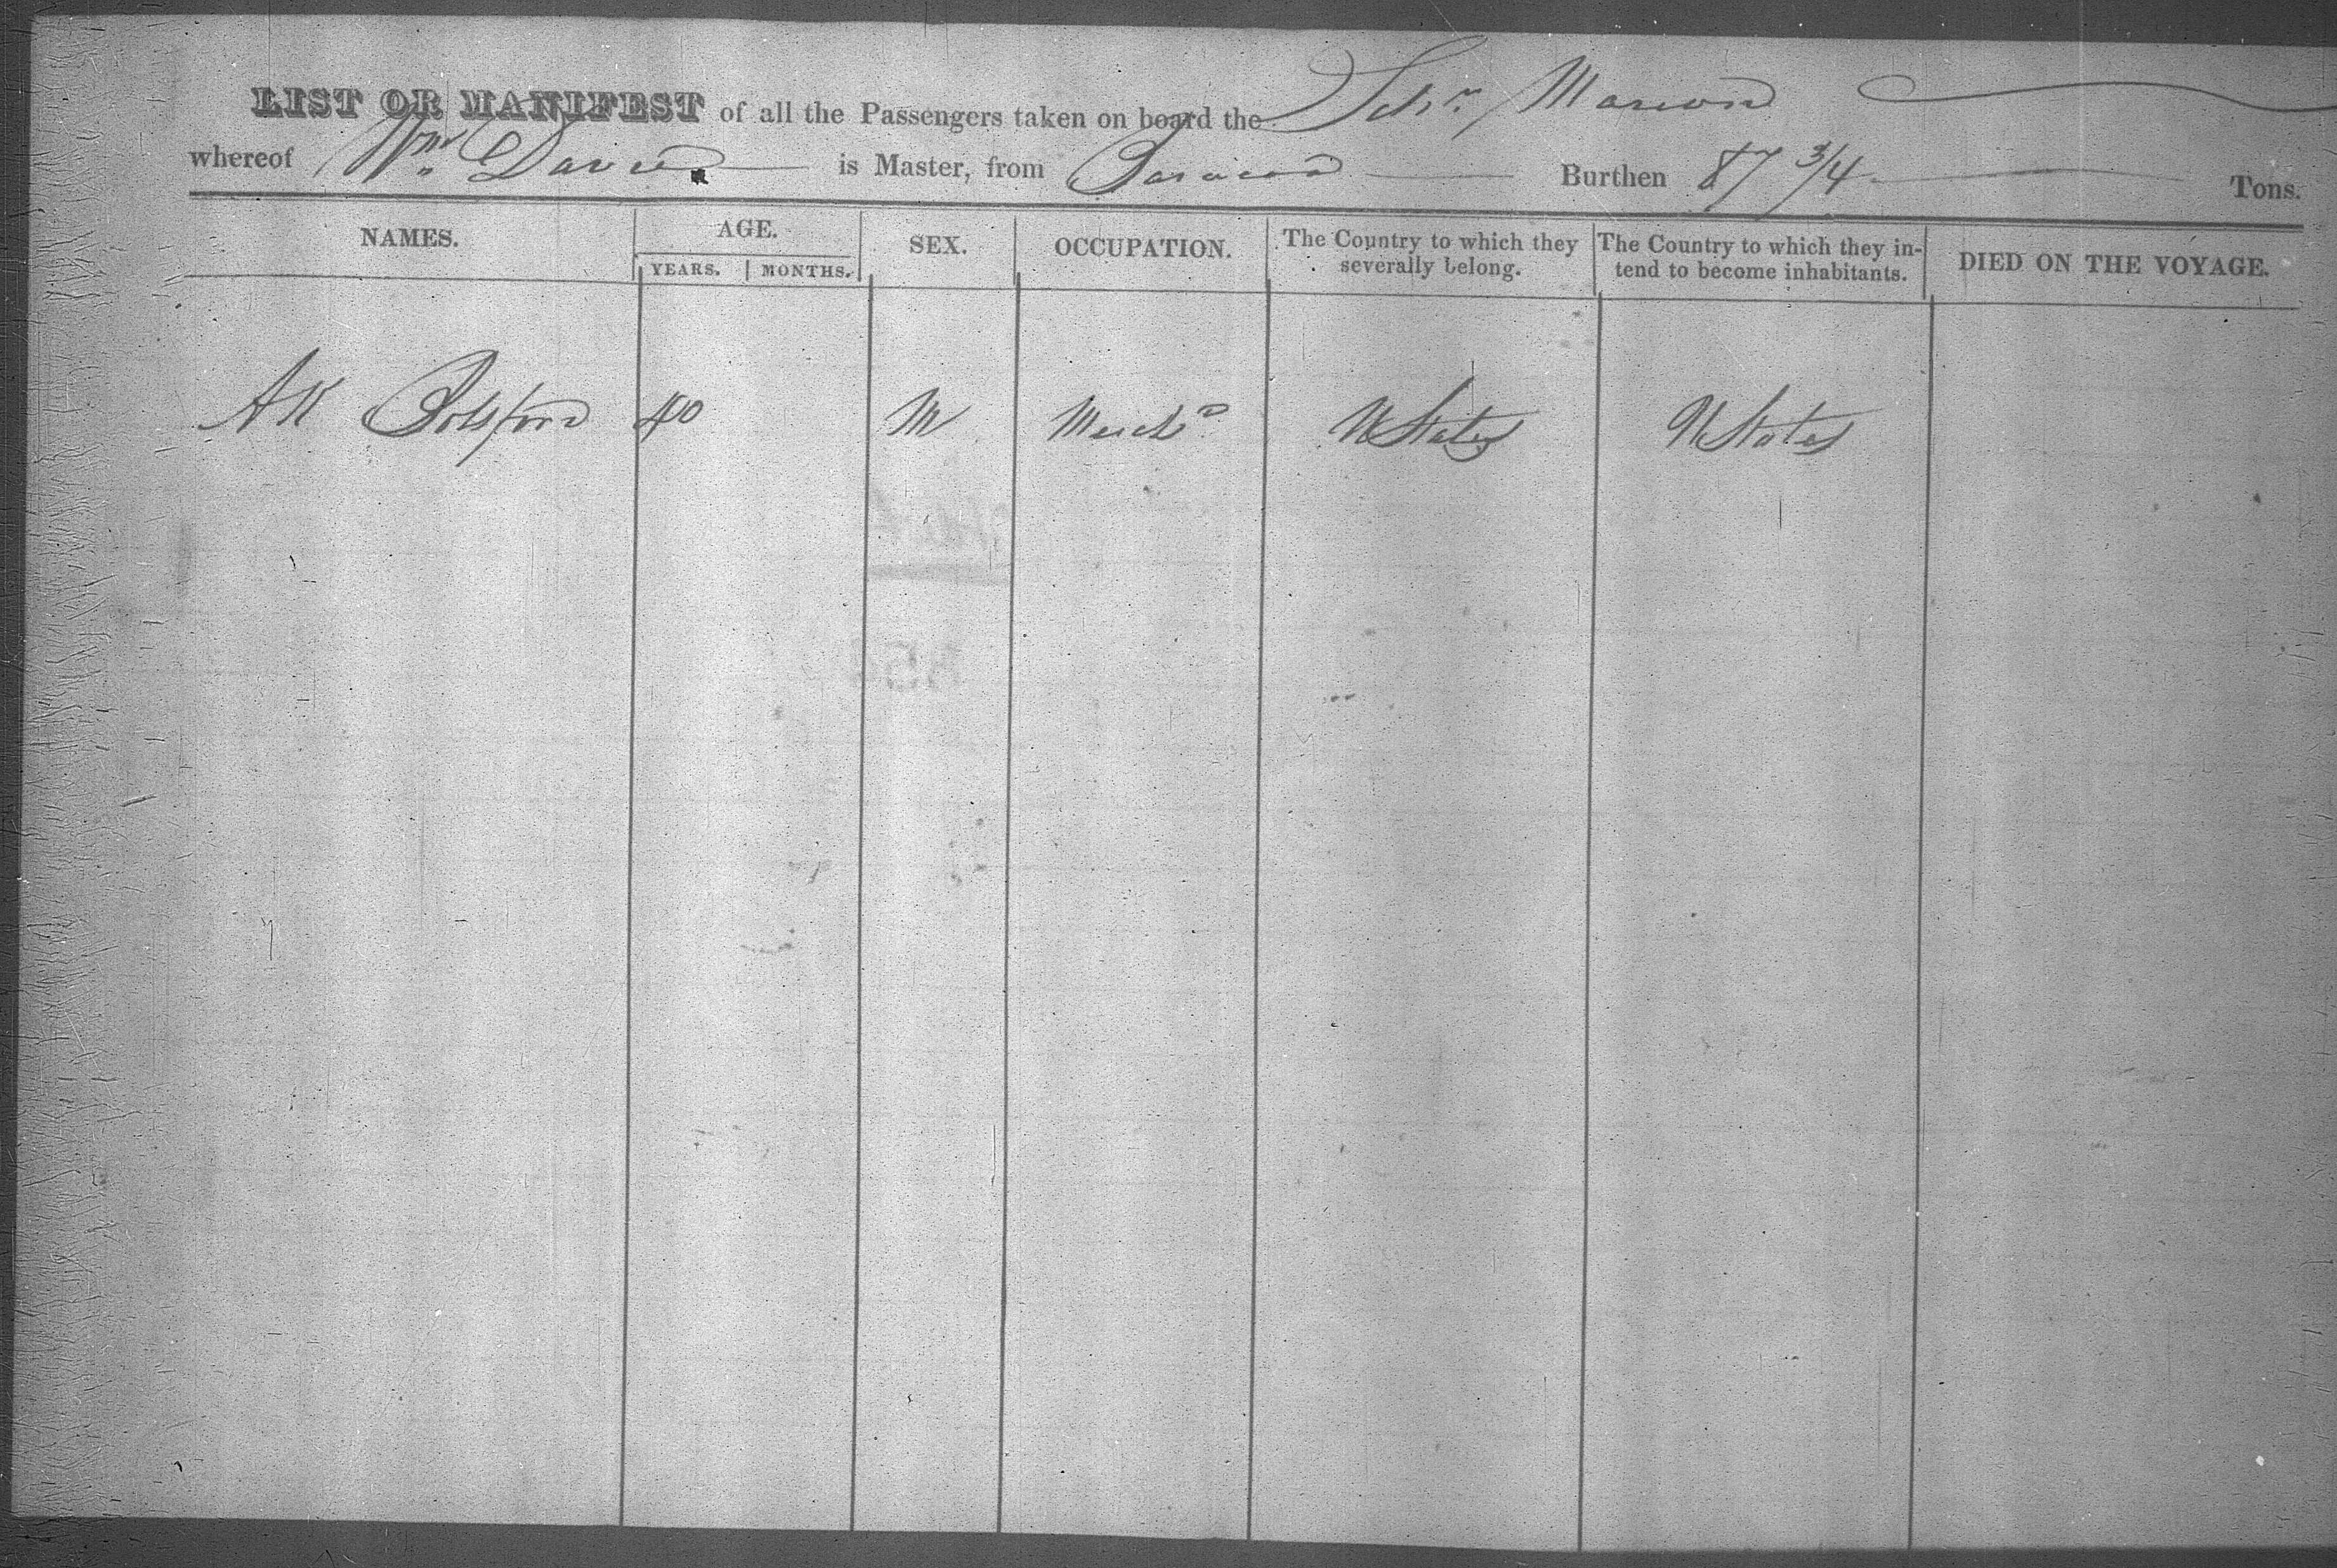 LIST OR MANIFEST of all the Passengers taken on board the Schr. Marion
whereof Wm Davis is Master, from Baracoa Burthen 87 3/4 Tons.
NAMES. AGE. SEX. OCCUPATION. The Country to which they severally belong. The Country to which they intend to become inhabitants. DIED ON THE VOYAGE.
YEARS. MONTHS.
A K Botsford 40 M Merch UStates UStates